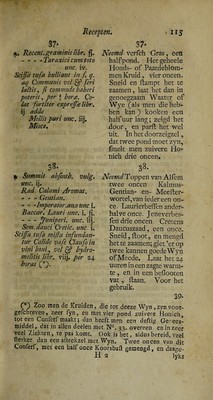 Recepten. 115
37.
℞. Recent. graminis libr. ß.
- - - - Taraxici cum toto
unc. iv.
Scissa tusa bulliant in s. q.
aq Communis vel & seri
lactis, si commode haberi
poterit, per ½ hora. Colat
fortiter expressæ libr.
ij adde
Mellis puri unc. iij.
Misce.
38.
℞ Summit. absinth. vulg.
unc. ij.
Rad. Calami Aromat.
- - - - Gentian.
- - - Imperator. ana unc i.
Baccar. Lauri unc. i. ß.
- - - Juniperi. unc. iij.
Sem. dauci Cretic. unc i.
Scissa tusa mista infundantur
Calide vase Clauso in
vini boni, vel & hydromelitis
libr. viij. per 24
horas (*).
37.
Neemd versch Gras, een
half pond. Het geheele
Honds- of Paardebloemen
Kruid, vier oncen.
Sneid en stampt het te
zaamen, laat het dan in
genoegzaam Water of
Wye (als men die hebben
kan) kooken een
half uur lang; zeigd het
door, en parst het wel
uit. In het doorzeigsel,
dat twee pond moet zyn,
smelt men zuivere Honich
drie oncen.
38.
Neemd Toppen van Alssem
twee oncen Kalmus-
Gentian- en Meesterwortel,
van ieder een once.
Laurierbessen anderhalve
once. Jeneverbessen
drie oncen Creteen
Daucuszaad, een once.
Sneid, stoot, en mengd
het te zaamen; giet 'er op
twee kannen goede Wyn
of Meede. Laat het 24
uuren in een zagte warmte,
en in een beslooten
vat, staan. Voor het
gebruik.
39.
(*) Zoo men de Kruiden, die tot deeze Wyn, zyn voorgeschreven,
zeer fyn, en met vier pond zuivere Honich,
tot een Conserf maakt; dan heeft men een deftig Geneesmiddel,
dat in allen deelen met N°. 33. overeen en in zeer
veel Ziekten, te pas komt. Ook is het, aldus bereid, veel
sterker dan een aftrekzel met Wyn. Twee oncen van dit
Conserf, met een half once Koorsbast gemengd, en daage-
H 2 lyks